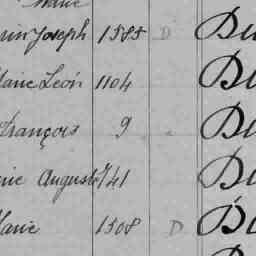 Marie
rin Joseph 1585 D Du
Marie León 1104 Du
François 9 " Du
rie Auguste 741 Du
Marie 1508 D Du